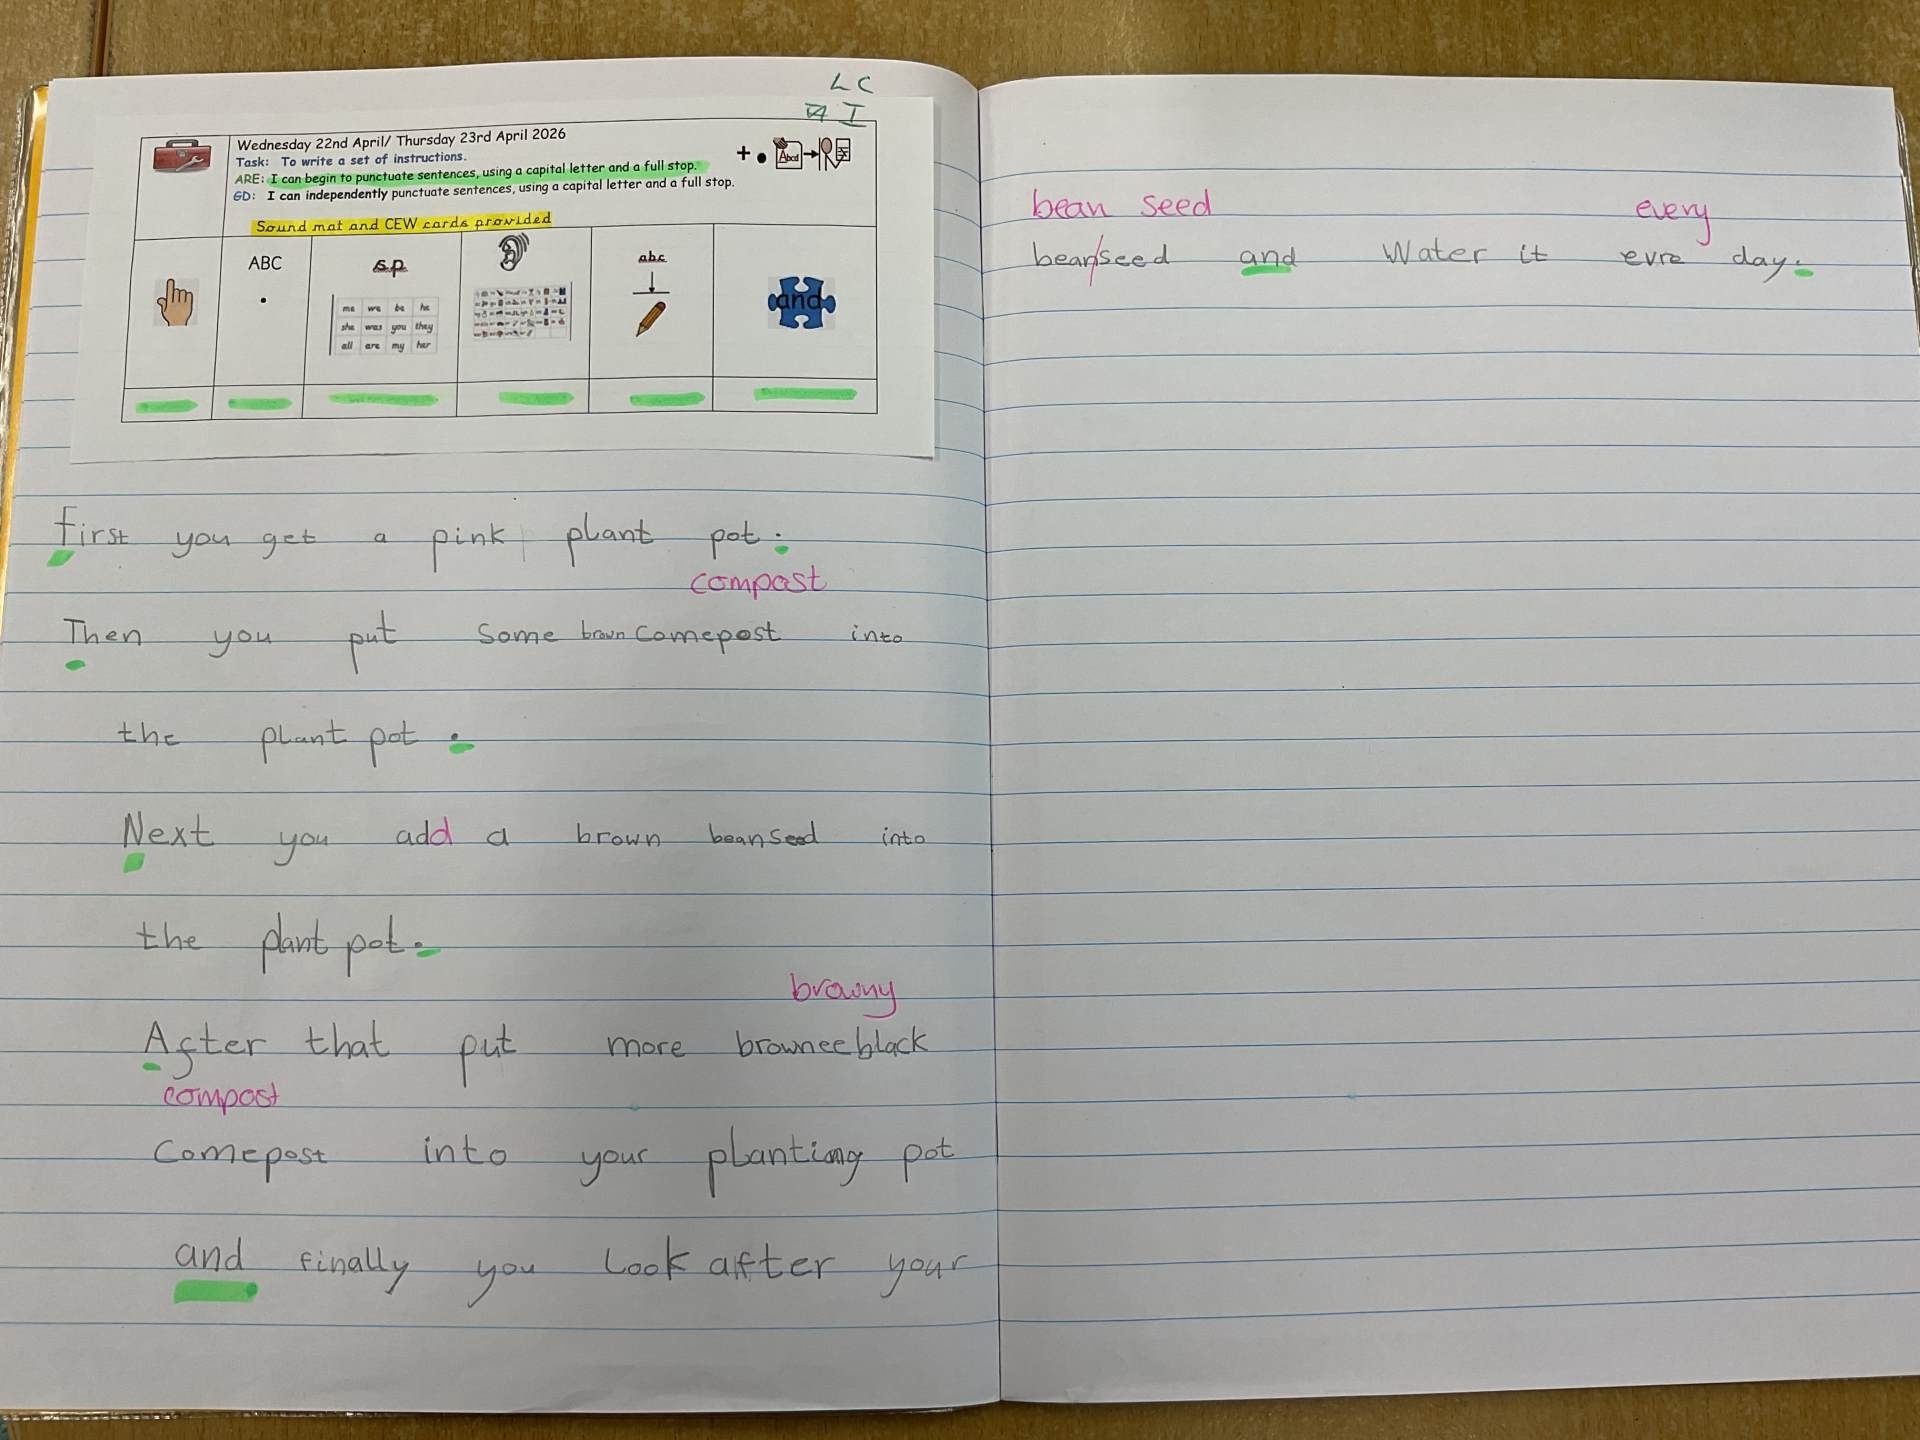 LC
I
Wednesday 22nd April/ Thursday 23rd April 2026
Task: To write a set of instructions.
ARE: I can begin to punctuate sentences, using a capital letter and a full stop.
GD: I can independently punctuate sentences, using a capital letter and a full stop.
+ . Abcd
Sound mat and CEW cards provided
ABC
.
sp
me we be he
she was you they
all are my her
abc
and
first you get a pink plant pot.
compost
Then you put some brown comepost into
the plant pot.
Next you add a brown beanseed into
the plant pot.
browny
After that put more browneeblack
compost
comepost into your planting pot
and finally you look after your
bean seed every
bean/seed and Water it evre day.